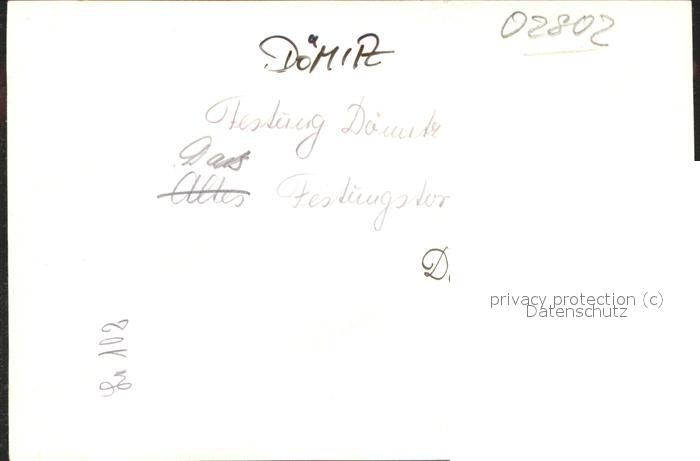 02802
DÖMITZ
Festung Dömitz
Das
Altes Festungstor
D
privacy protection (c)
Datenschutz
102